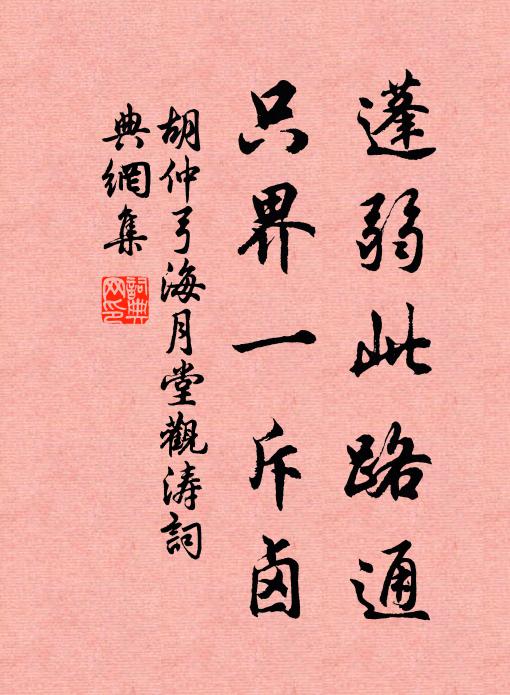 蓬弱此路通
只界一斥卤
胡仲弓海月堂觀涛詞
典網集
詞典
网印